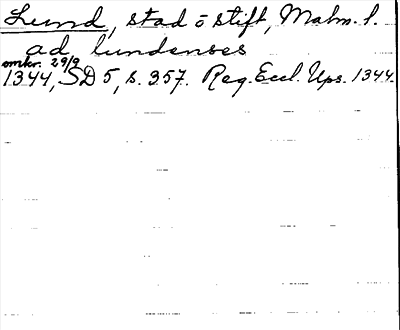 Lund, stad o stift, Malm. l.
ad lundenses
omkr. 29/9
1344, SD 5, s. 357. Reg. Eccl. Ups. 1344.